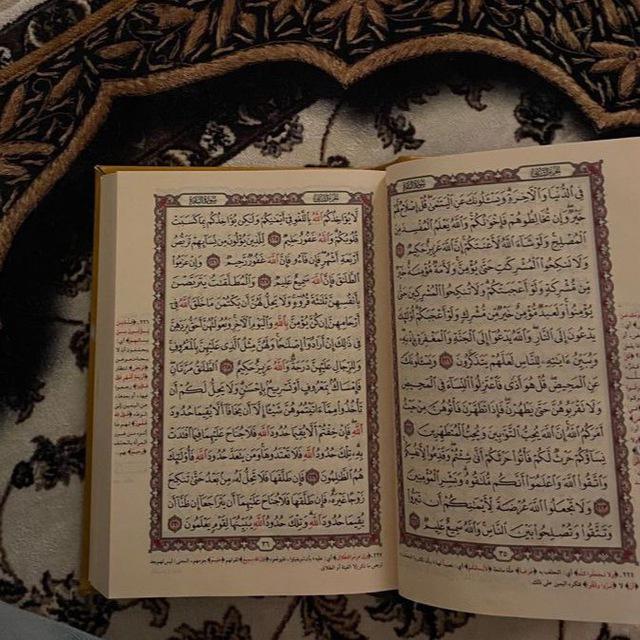 سُورَةُ البَقَرَةِ
فِي ٱلدُّنْيَا وَٱلْأٓخِرَةِۗ وَيَسْـَٔلُونَكَ عَنِ ٱلْيَتَٰمَىٰۖ قُلْ إِصْلَاحٌ لَّهُمْ
خَيْرٌۖ وَإِن تُخَالِطُوهُمْ فَإِخْوَٰنُكُمْۚ وَٱللَّهُ يَعْلَمُ ٱلْمُفْسِدَ مِنَ
ٱلْمُصْلِحِۚ وَلَوْ شَآءَ ٱللَّهُ لَأَعْنَتَكُمْۚ إِنَّ ٱللَّهَ عَزِيزٌ حَكِيمٌ ٢٢٠
وَلَا تَنكِحُوا۟ ٱلْمُشْرِكَٰتِ حَتَّىٰ يُؤْمِنَّۚ وَلَأَمَةٌ مُّؤْمِنَةٌ خَيْرٌ
مِّن مُّشْرِكَةٍ وَلَوْ أَعْجَبَتْكُمْۗ وَلَا تُنكِحُوا۟ ٱلْمُشْرِكِينَ حَتَّىٰ
يُؤْمِنُوا۟ۚ وَلَعَبْدٌ مُّؤْمِنٌ خَيْرٌ مِّن مُّشْرِكٍ وَلَوْ أَعْجَبَكُمْۗ أُو۟لَٰٓئِكَ
يَدْعُونَ إِلَى ٱلنَّارِۖ وَٱللَّهُ يَدْعُوٓا۟ إِلَى ٱلْجَنَّةِ وَٱلْمَغْفِرَةِ بِإِذْنِهِۦۖ
وَيُبَيِّنُ ءَايَٰتِهِۦ لِلنَّاسِ لَعَلَّهُمْ يَتَذَكَّرُونَ ٢٢١ وَيَسْـَٔلُونَكَ
عَنِ ٱلْمَحِيضِۖ قُلْ هُوَ أَذًى فَٱعْتَزِلُوا۟ ٱلنِّسَآءَ فِي ٱلْمَحِيضِ
وَلَا تَقْرَبُوهُنَّ حَتَّىٰ يَطْهُرْنَۖ فَإِذَا تَطَهَّرْنَ فَأْتُوهُنَّ مِنْ حَيْثُ
أَمَرَكُمُ ٱللَّهُۚ إِنَّ ٱللَّهَ يُحِبُّ ٱلتَّوَّٰبِينَ وَيُحِبُّ ٱلْمُتَطَهِّرِينَ ٢٢٢
نِسَآؤُكُمْ حَرْثٌ لَّكُمْ فَأْتُوا۟ حَرْثَكُمْ أَنَّىٰ شِئْتُمْۖ وَقَدِّمُوا۟ لِأَنفُسِكُمْۚ
وَٱتَّقُوا۟ ٱللَّهَ وَٱعْلَمُوٓا۟ أَنَّكُم مُّلَٰقُوهُۗ وَبَشِّرِ ٱلْمُؤْمِنِينَ ٢٢٣
وَلَا تَجْعَلُوا۟ ٱللَّهَ عُرْضَةً لِّأَيْمَٰنِكُمْ أَن تَبَرُّوا۟
وَتَتَّقُوا۟ وَتُصْلِحُوا۟ بَيْنَ ٱلنَّاسِۗ وَٱللَّهُ سَمِيعٌ عَلِيمٌ ٢٢٤
٣٥
سُورَةُ البَقَرَةِ
لَّا يُؤَاخِذُكُمُ ٱللَّهُ بِٱللَّغْوِ فِيٓ أَيْمَٰنِكُمْ وَلَٰكِن يُؤَاخِذُكُم بِمَا كَسَبَتْ
قُلُوبُكُمْۗ وَٱللَّهُ غَفُورٌ حَلِيمٌ ٢٢٥ لِّلَّذِينَ يُؤْلُونَ مِن نِّسَآئِهِمْ تَرَبُّصُ
أَرْبَعَةِ أَشْهُرٍۖ فَإِن فَآءُو فَإِنَّ ٱللَّهَ غَفُورٌ رَّحِيمٌ ٢٢٦ وَإِنْ عَزَمُوا۟
ٱلطَّلَٰقَ فَإِنَّ ٱللَّهَ سَمِيعٌ عَلِيمٌ ٢٢٧ وَٱلْمُطَلَّقَٰتُ يَتَرَبَّصْنَ
بِأَنفُسِهِنَّ ثَلَٰثَةَ قُرُوٓءٍۚ وَلَا يَحِلُّ لَهُنَّ أَن يَكْتُمْنَ مَا خَلَقَ ٱللَّهُ فِيٓ
أَرْحَامِهِنَّ إِن كُنَّ يُؤْمِنَّ بِٱللَّهِ وَٱلْيَوْمِ ٱلْأٓخِرِۚ وَبُعُولَتُهُنَّ أَحَقُّ بِرَدِّهِنَّ
فِي ذَٰلِكَ إِنْ أَرَادُوٓا۟ إِصْلَٰحًاۚ وَلَهُنَّ مِثْلُ ٱلَّذِي عَلَيْهِنَّ بِٱلْمَعْرُوفِۚ
وَلِلرِّجَالِ عَلَيْهِنَّ دَرَجَةٌۗ وَٱللَّهُ عَزِيزٌ حَكِيمٌ ٢٢٨ ٱلطَّلَٰقُ مَرَّتَانِۖ
فَإِمْسَاكٌۢ بِمَعْرُوفٍ أَوْ تَسْرِيحٌۢ بِإِحْسَٰنٍۗ وَلَا يَحِلُّ لَكُمْ أَن
تَأْخُذُوا۟ مِمَّآ ءَاتَيْتُمُوهُنَّ شَيْـًٔا إِلَّآ أَن يَخَافَآ أَلَّا يُقِيمَا حُدُودَ
ٱللَّهِۖ فَإِنْ خِفْتُمْ أَلَّا يُقِيمَا حُدُودَ ٱللَّهِ فَلَا جُنَاحَ عَلَيْهِمَا فِيمَا ٱفْتَدَتْ
بِهِۦۗ تِلْكَ حُدُودُ ٱللَّهِ فَلَا تَعْتَدُوهَاۚ وَمَن يَتَعَدَّ حُدُودَ ٱللَّهِ فَأُو۟لَٰٓئِكَ
هُمُ ٱلظَّٰلِمُونَ ٢٢٩ فَإِن طَلَّقَهَا فَلَا تَحِلُّ لَهُۥ مِنۢ بَعْدُ حَتَّىٰ تَنكِحَ
زَوْجًا غَيْرَهُۥۗ فَإِن طَلَّقَهَا فَلَا جُنَاحَ عَلَيْهِمَآ أَن يَتَرَاجَعَآ إِن ظَنَّآ أَن
يُقِيمَا حُدُودَ ٱللَّهِۗ وَتِلْكَ حُدُودُ ٱللَّهِ يُبَيِّنُهَا لِقَوْمٍ يَعْلَمُونَ ٢٣٠
٣٦